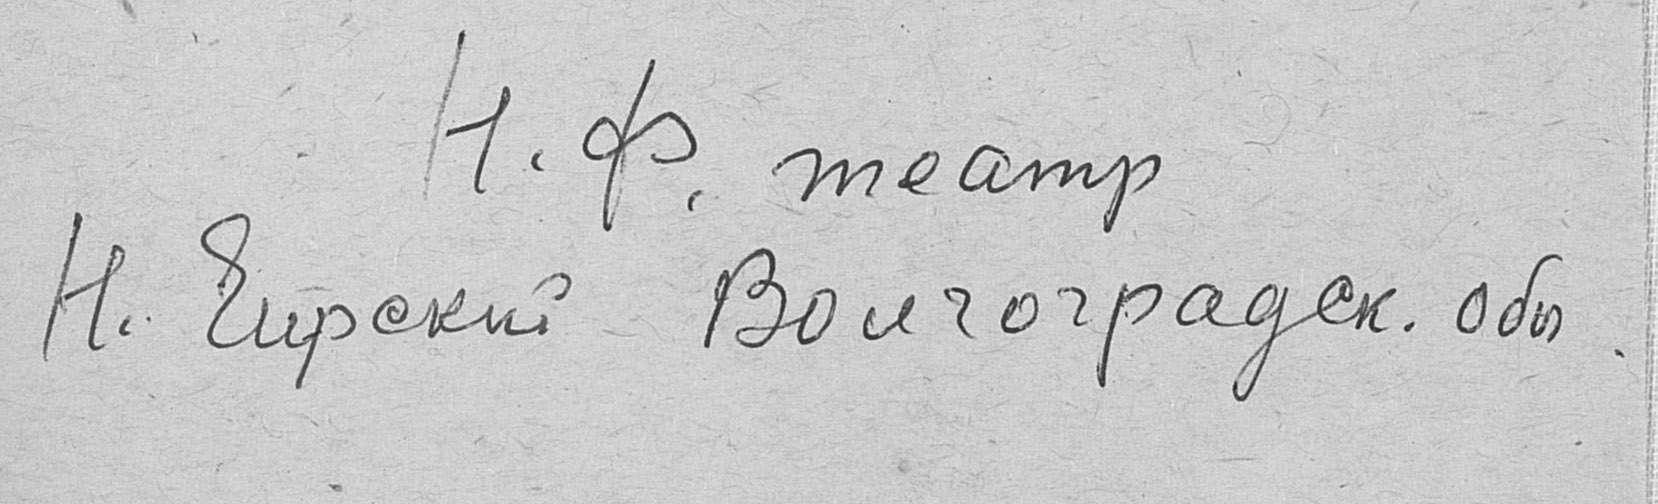 Н. Ф. театр
Н. Чирский Волгоградск. обл.